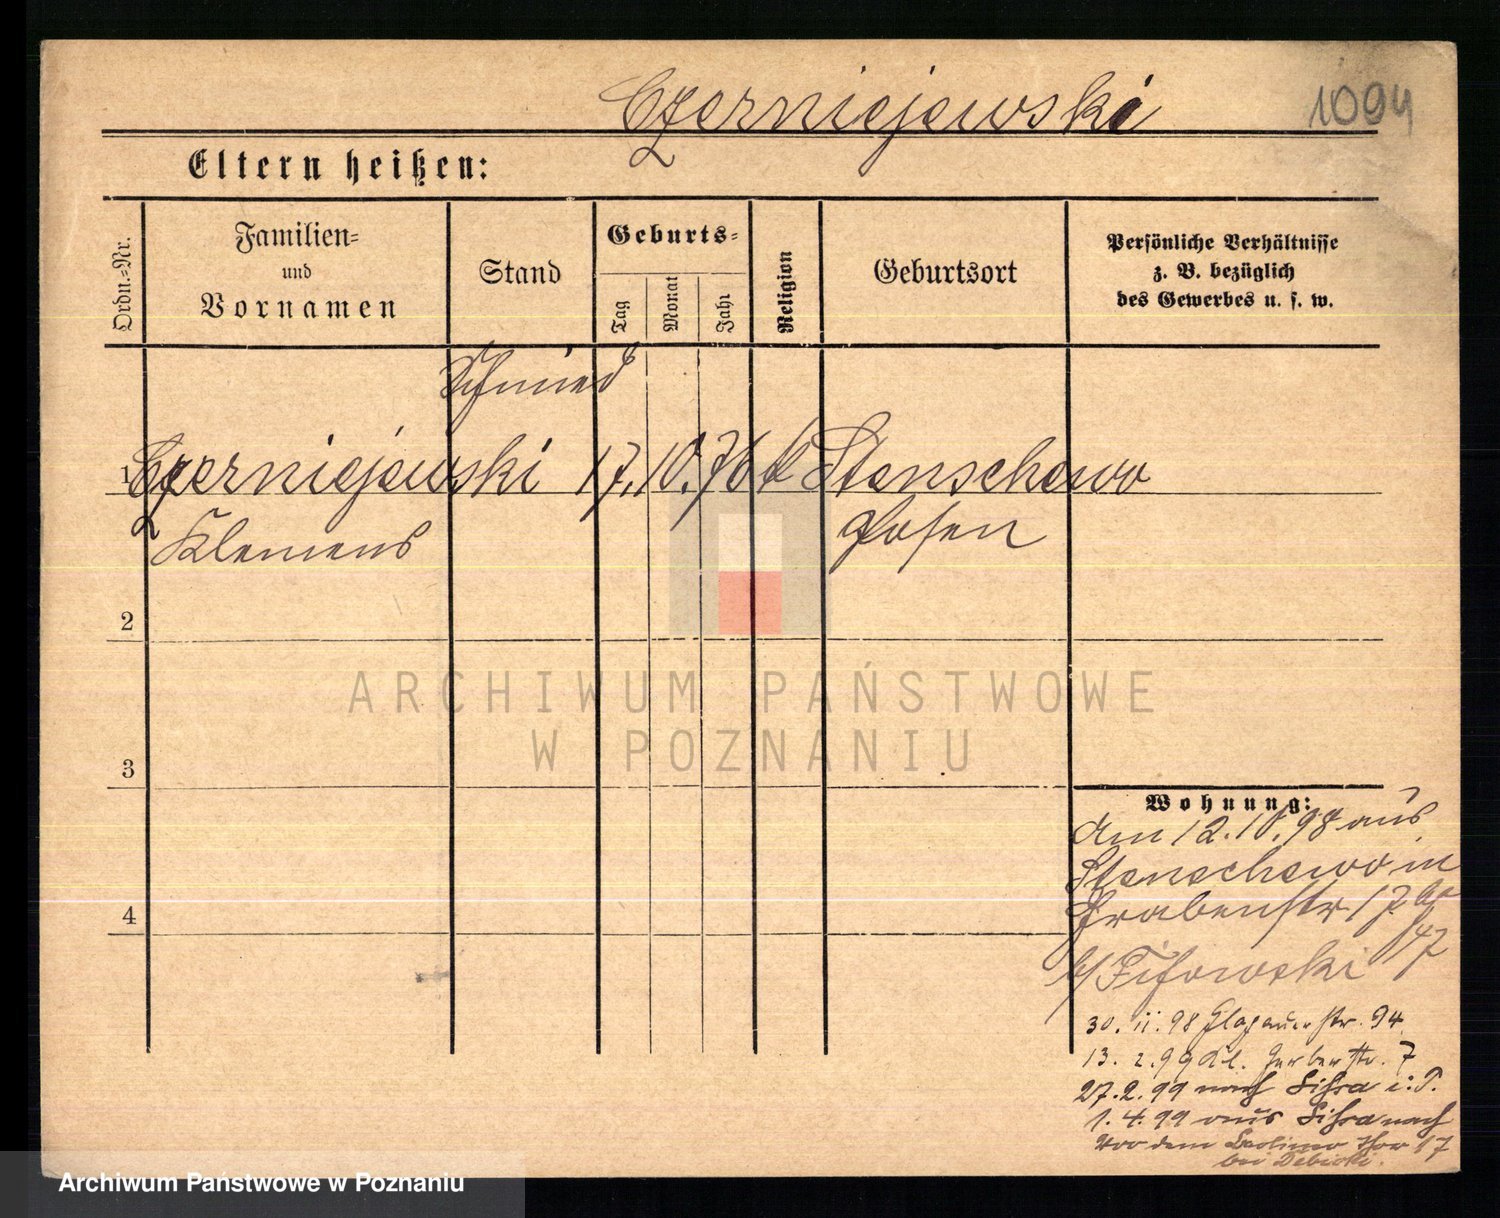 Czerniejewski
1094
Eltern heißen:
Ordn.-Nr.
Familien-
und
Vornamen
Stand
Geburts-
Tag
Monat
Jahr
Religion
Geburtsort
Persönliche Verhältnisse
z. B. bezüglich
des Gewerbes u. s. w.
Schmied
1 Czerniejewski 17. 10. 76 k Stenschewo
Klemens Posen
2
3
4
ARCHIWUM PAŃSTWOWE
W POZNANIU
Wohnung:
Am 12.10.98 aus
Stenschewo in
Grabenstr 17
b/
30. 11. 98 Glogauer str. 94
13. 2. 99 Kl. Gerber str. 7
27.2.99 nach i. P.
1. 4. 99 aus nach
Vor dem Berliner Thor 17
bei Debicki.
Archiwum Państwowe w Poznaniu